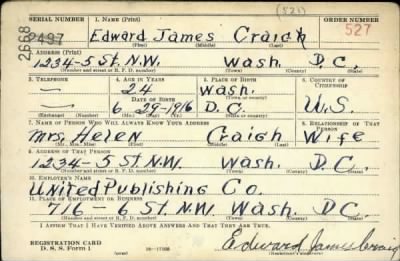 (521)
SERIAL NUMBER 1. NAME (Print) ORDER NUMBER
2668 2497 Edward James Craigh 527
(First) (Middle) (Last)
2. ADDRESS (Print)
1234-5 St. N.W. Wash. D.C.
(Number and street or R. F. D. number) (Town) (County) (State)
3. TELEPHONE 4. AGE IN YEARS 5. PLACE OF BIRTH 6. COUNTRY OF CITIZENSHIP
— 24 Wash.
DATE OF BIRTH (Town or county)
— 6 29-1916 D.C. U.S.
(Exchange) (Number) (Mo.) (Day) (Yr.) (State or country)
7. NAME OF PERSON WHO WILL ALWAYS KNOW YOUR ADDRESS 8. RELATIONSHIP OF THAT PERSON
Mrs. Helen Caigh Wife
(Mr., Mrs., Miss) (First) (Middle) (Last)
9. ADDRESS OF THAT PERSON
1234-5 St. N.W. Wash. D.C.
(Number and street or R. F. D. number) (Town) (County) (State)
10. EMPLOYER'S NAME
United Publishing Co.
11. PLACE OF EMPLOYMENT OR BUSINESS
716-6 St. N.W. Wash. D.C.
(Number and street or R. F. D. number) (Town) (County) (State)
I AFFIRM THAT I HAVE VERIFIED ABOVE ANSWERS AND THAT THEY ARE TRUE.
REGISTRATION CARD
D. S. S. Form 1 Edward James Craig
(Registrant's signature)